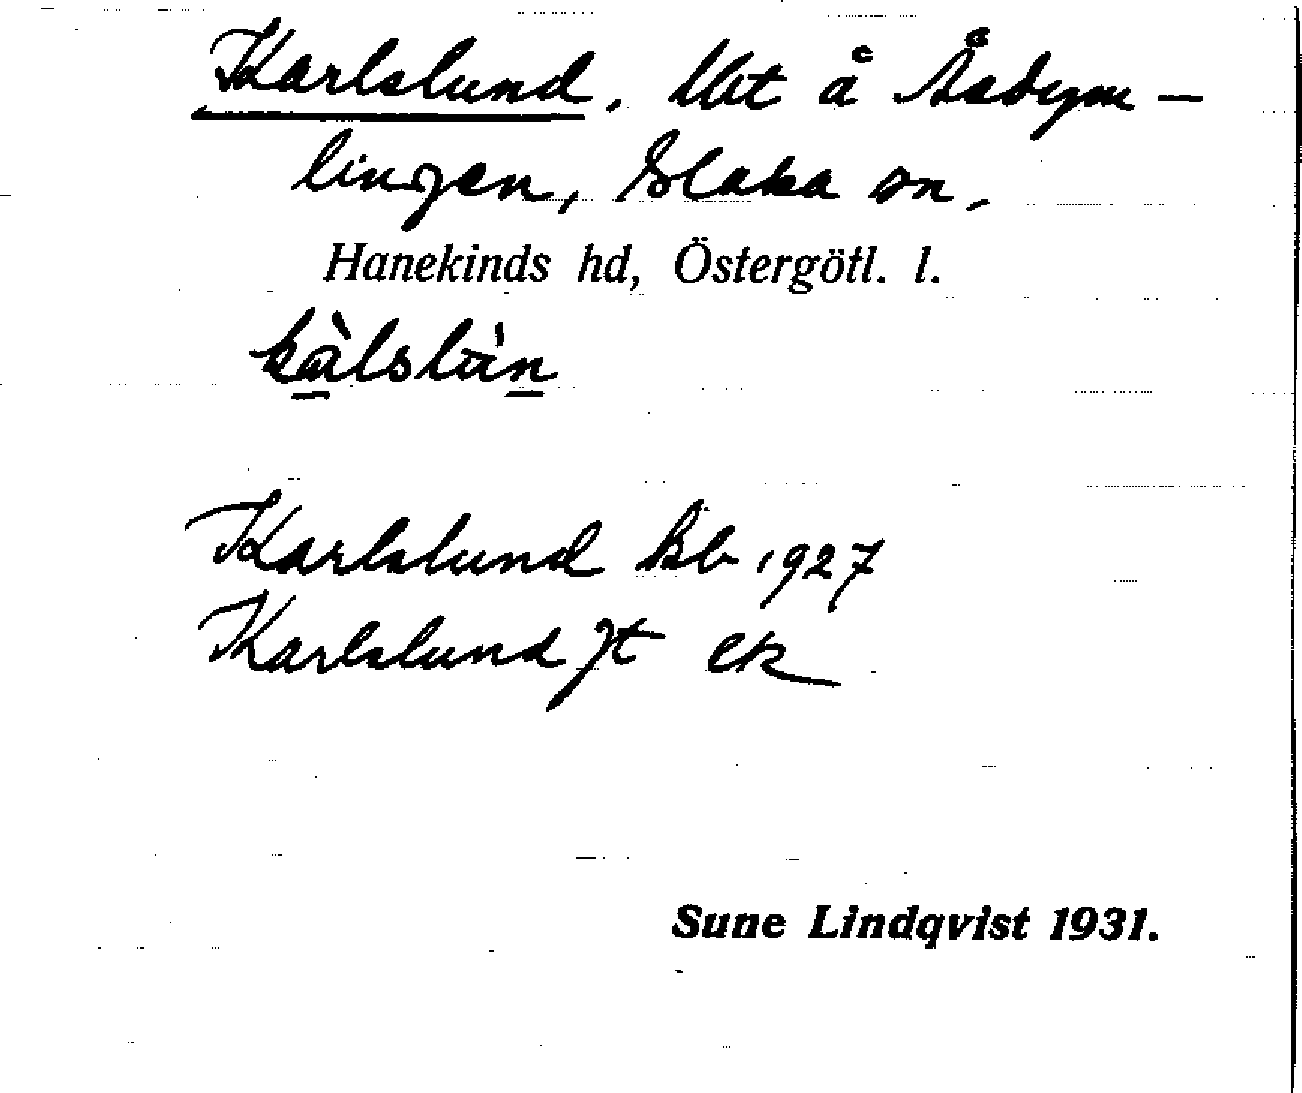 Karlslund, Utt å Åsdym-
lingen, Slaka sn,
Hanekinds hd, Östergötl. l.
kàlslùn
Karlslund Bb 1927
Karlslund Jt ek
Sune Lindqvist 1931.